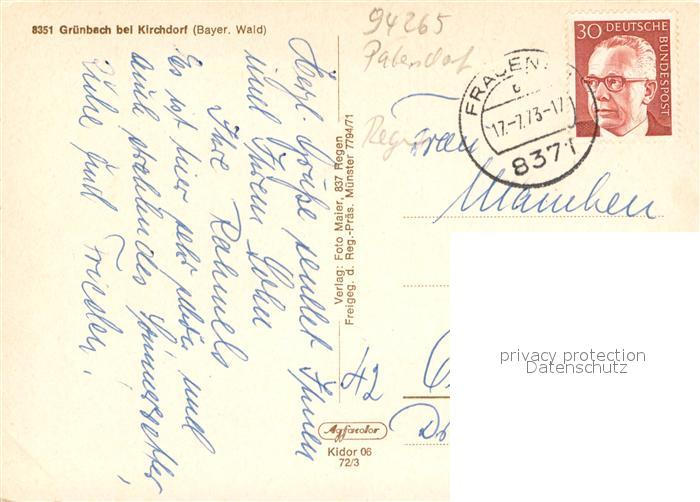 8351 Grünbach bei Kirchdorf (Bayer. Wald)
94265
Patersdorf
Regen
30 DEUTSCHE
BUNDESPOST
FRAUEN
c
17.-7.73-17
8371
Herzl. Grüße sendet Ihnen
und Ihrem Sohn
Ihre Rahmels
Es ist hier sehr schön und
auch strahlendes Sommerwetter,
Ruhe und Frieden.
Verlag: Foto Maier, 837 Regen
Freigeg. d. Reg.-Präs. Münster 7794/71
Frau
42
Agfacolor
Kidor 06
72/3
privacy protection
Datenschutz